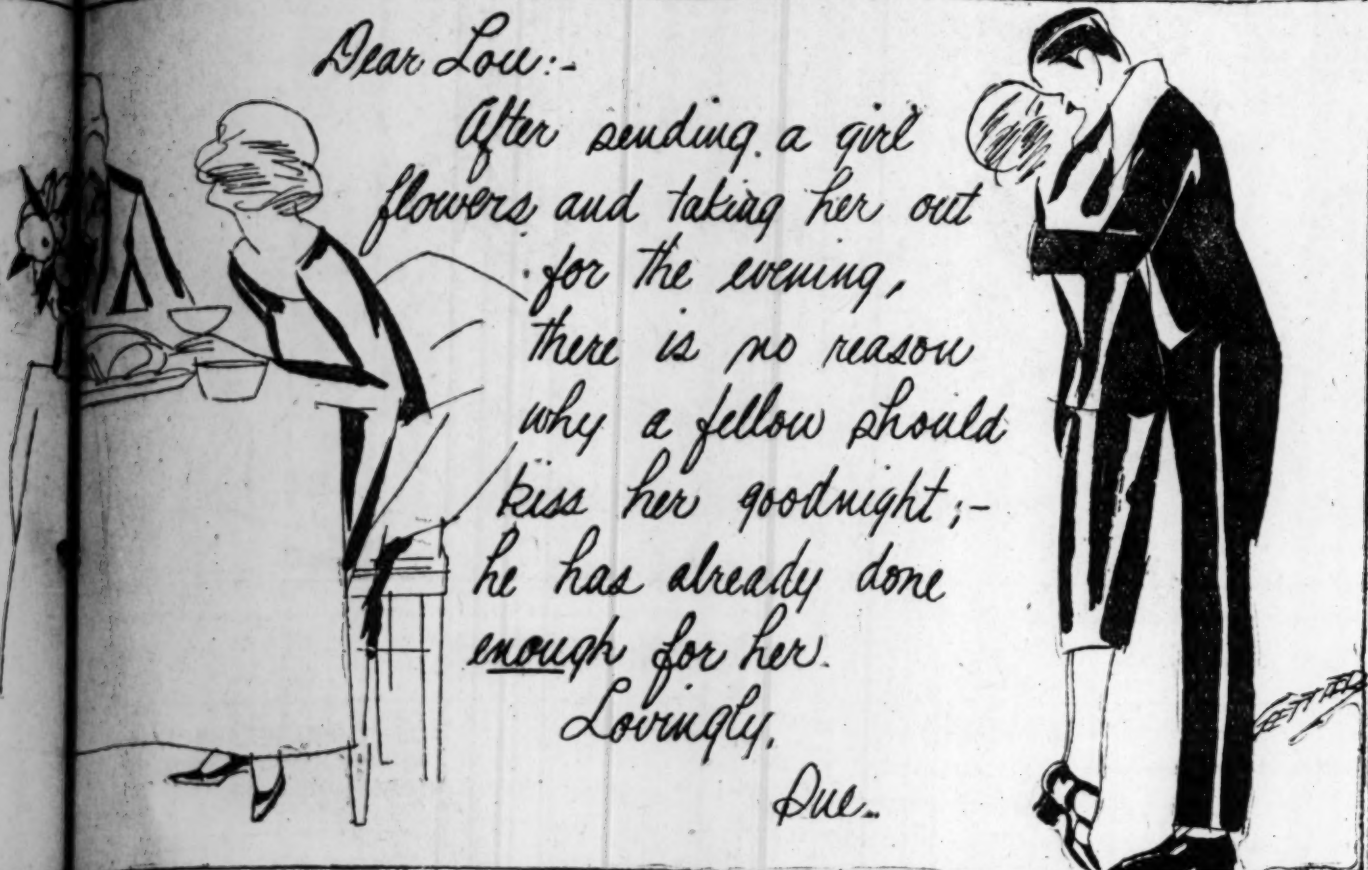 Dear Lou:-
After sending a girl
flowers and taking her out
for the evening,
there is no reason
why a fellow should
kiss her goodnight;-
he has already done
enough for her.
Lovingly,
Sue..